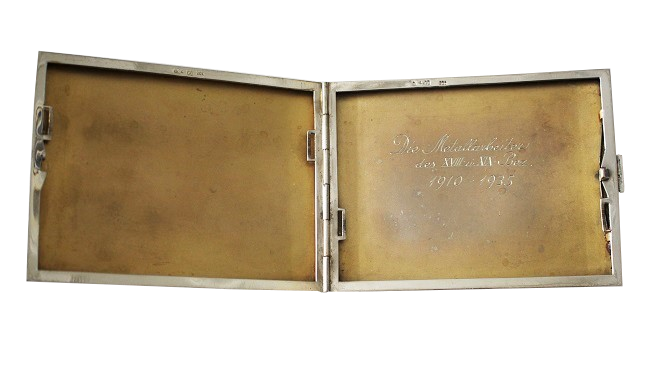 Die Metallarbeiter
des XVIII u. XIX Bez.
1910 - 1935